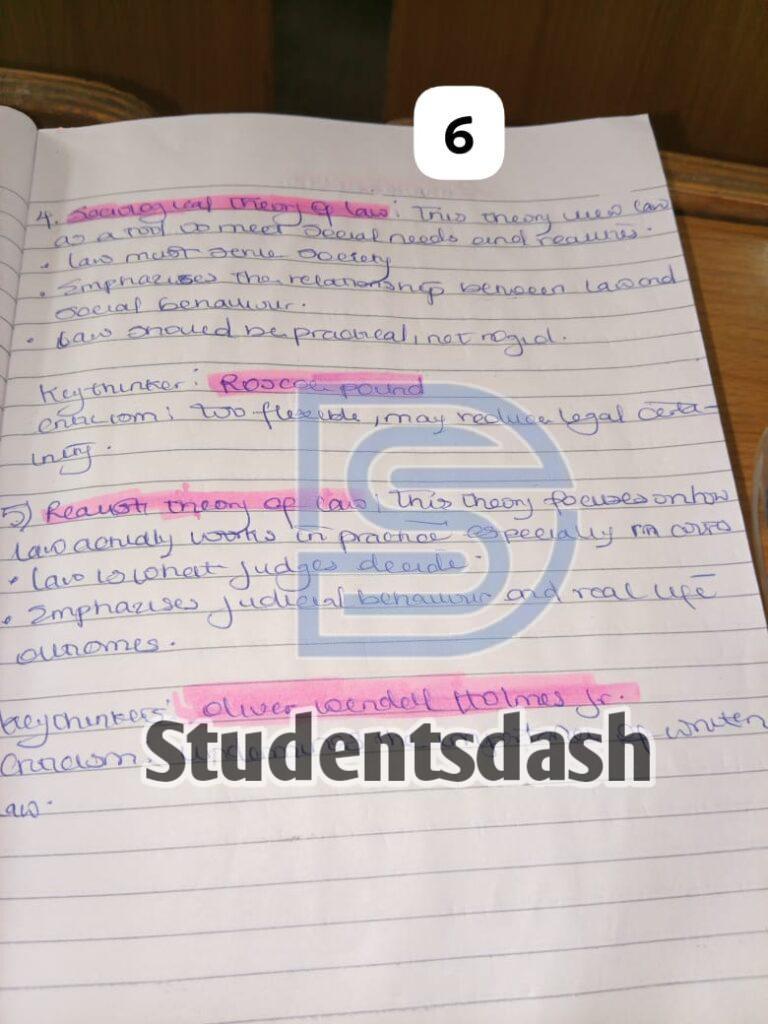 6
4. Sociological theory of law: This theory views law
as a tool to meet social needs and realities.
• Law must serve society
• Emphazises the relationship between law and
social behaviour.
• Law should be practical, not rigid.
Key thinker: Roscoe pound
criticism: Too flexible, may reduce legal certa-
inty.
5) Realist theory of law: This theory focuses on how
law actually works in practice especially in courts
• Law is what judges decide.
• Emphazises judicial behaviour and real life
outcomes.
Key thinkers: Oliver Wendell Holmes Jr.
Criticism: of written
Studentsdash
law.